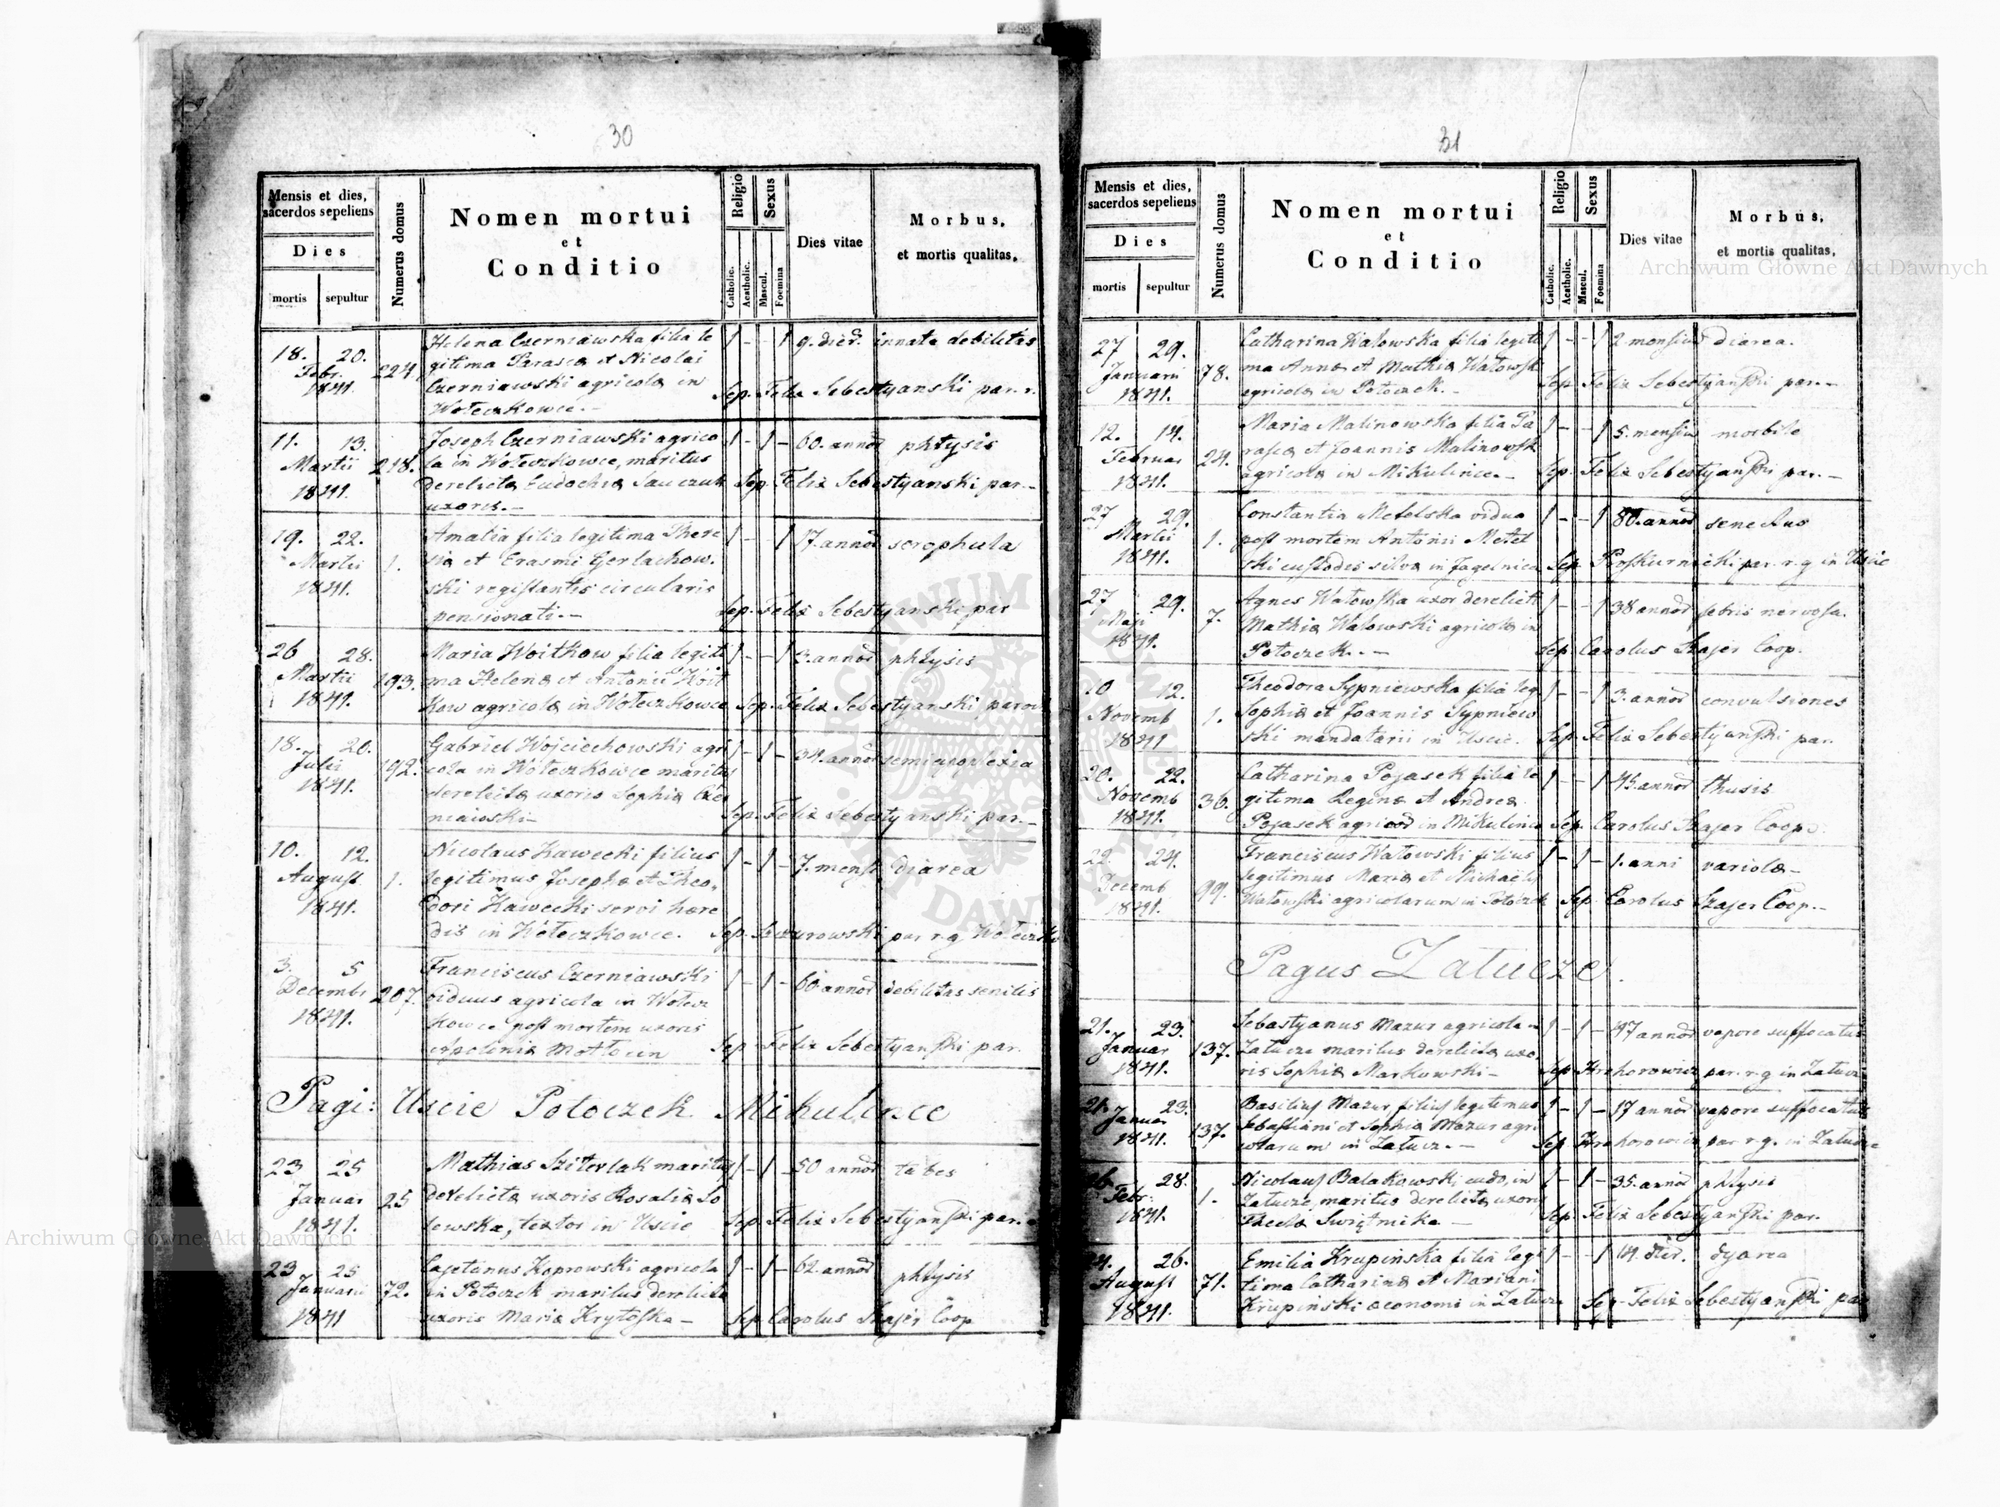 30
Mensis et dies, sacerdos sepeliens
Dies
mortis sepultur
Numerus domus
Nomen mortui
et
Conditio
Religio
Catholic. Acatholic.
Sexus
Mascul. Foemina
Dies vitae
Morbus,
et mortis qualitas.
18. 20. Helena Czerniawska filia le 1 - - 1 9. dier. innata debilitas
Febr. 224. gitima Parascæ et Nicolai
1841. Czerniawski agricolæ in Sep. Felix Sebestyanski par. r.
Wołczkowce.-
11. 13. Joseph Czerniawski agrico 1 - 1 - 60. annor phtysis
Martii 218. la in Wołczkowce, maritus
1841. derelictæ Eudochiæ Sauczuk Sep. Felix Sebestyanski par.-
uxoris.-
19. 22. Amalia filia legitima There 1 - - 1 17. annor scrophula
Martii 1. siæ et Erasmi Gerlachow.
1841. ski registantis circularis
pensionati.- Sep. Felix Sebestyanski par
26 28. Maria Woitkow filia legit 1 - - 1 3. annor phtysis
Martii 193. ma Helenæ et Antonii Woit
1841. kow agricolæ in Wołczkowce Sep. Felix Sebestyanski paroch
18. 20. Gabriel Wojciechowski agri 1 - 1 - 34. annor semiapoplexia
Julii 192. cola in Wołczkowce maritus
1841. derelictæ uxoris Sophiæ Czer Sep. Felix Sebestyanski par.-
niawski-
10. 12. Nicolaus Kawecki filius 1 - 1 - 7. mens. diarea
August 1. legitimus Josephæ et Theo,
1841. dori Kawecki servi hære
dis in Wołczkowce. Sep. par. r. g. Wołczko
3. 5 Franciscus Czerniawski 1 - 1 - 60 annor debilitas senilis
Decembr 207. viduus agricola in Wołcz
1841. kowce post mortem uxoris
Apoloniæ Sep. Felix Sebestyanski par.
Pagi: Uscie Potoczek Mikulince
23 25 Mathias Sziterlak maritus 1 - 1 - 50 annor tabes
Januar 25 derelictæ uxoris Rosaliæ So
1841. lewska, textor in Uscie Sep. Felix Sebestyanski par.
23 25 Cajetanus Koprowski agricola 1 - 1 - 62. annor phtysis
Januarii 72. in Potoczek maritus derelictæ
1841 uxoris Mariæ Krytoska - Sep. Carolus Szajer Coop
31
Mensis et dies, sacerdos sepeliens
Dies
mortis sepultur
Numerus domus
Nomen mortui
et
Conditio
Religio
Catholic. Acatholic.
Sexus
Mascul. Foemina
Dies vitae
Morbus,
et mortis qualitas.
27 29. Catharina Watowska filia legiti 1 - - 1 2 mensium diarea.
Januarii 78. ma Annæ et Mathiæ Watowsk
1841. agricolæ in Potoczek.- Sep. Felix Sebestyanski par.-
12. 14. Maria Malinowska filia Pa 1 - - 1 5. mensium morbile
Februar 24. rascæ et Joannis Malinowsk
1841. agricolæ in Mikulince.- Sep. Felix Sebestyanski par.-
27 29. Constantia Metelska vidua 1 - - 1 80. annor senectus
Martii 1. post mortem Antonii Metel
1841. ski custodis silvæ in Jagelnica Sep. Proskurnicki par. r. g. in Uscie
27 29. Agnes Watowska uxor derelict 1 - - 1 38 annor febris nervosa.
Maji 7. Mathiæ Watowski agricolæ in
1841. Potoczek.- Sep. Carolus Szajer Coop.
10 12. Theodora Sypniewska filia leg 1 - - 1 3. annor convulsiones
Novemb 1. Sophiæ et Joannis Sypniew
1841 ski mandatarii in Uscie. Sep. Felix Sebestyanski par.
20. 22. Catharina Pojasek filia le 1 - - 1 45. annor thusis
Novemb 36. gitima Reginæ et Andreæ
1841. Pojasek agricol in Mikulince Sep. Carolus Szajer Coop.
22. 24. Franciscus Watowski filius 1 - 1 - 1. anni variolæ-
Decemb 99. legitimus Mariæ et Michaëlis
1841. Watowski agricolarum in Potoczek Sep. Carolus Szajer Coop.-
Pagus Załucze.
21. 23. Sebastyanus Mazur agricola in 1 - 1 - 47 annor vapore suffocatus
Januar 137. Załucze maritus derelictæ uxo
1841. ris Sophiæ Markowski - Sep. Hrehorowicz par. r. g in Załucze
21. 23. Basilius Mazur filius legitimus 1 - 1 - 17 annor vapore suffocatus
Januar 137. Sebastiani et Sophiæ Mazur agri
1841. colarum in Załucz.- Sep. Hrehorowicz par r. g. in Załucze
26 28. Nicolaus Balakowski, cudo, in 1 - 1 - 35. annor phtysis
Febr. 1. Załucze, maritus derelictæ uxoris
1841. Theclæ Sep. Felix Sebestyanski par.
24. 26. Emilia Krupinska filia legi 1 - - 1 14. dier. dyarea
August 71. tima Catharinæ et Mariani
1841. Krupinski œconomi in Załucze Sep. Felix Sebestyanski par
Archiwum Główne Akt Dawnych
Archiwum Główne Akt Dawnych